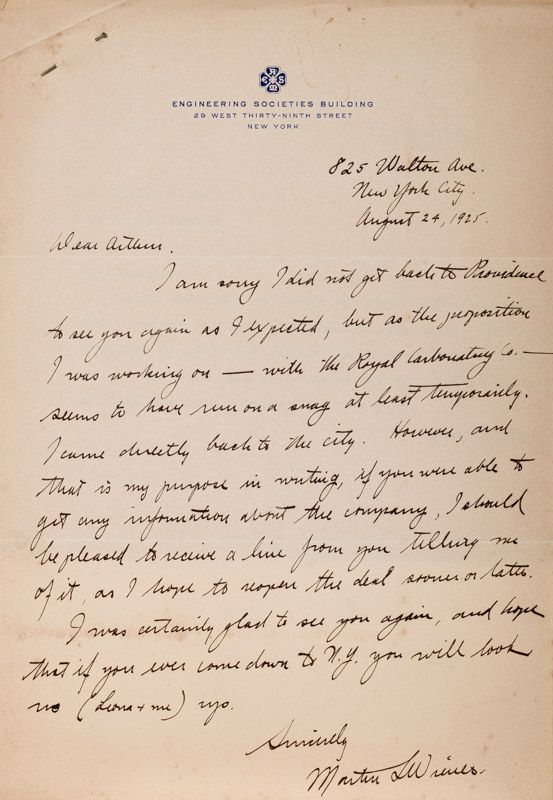 ENGINEERING SOCIETIES BUILDING
29 WEST THIRTY-NINTH STREET
NEW YORK
825 Walton Ave.
New York City.
August 24, 1925.
Dear Arthur.
I am sorry I did not get back to Providence
to see you again as I expected, but as the proposition
I was working on — with the Royal Carbonating Co. —
seems to have run on a snag at least temporarily.
I came directly back to the city. However, and
that is my purpose in writing, if you were able to
get any information about the company, I should
be pleased to receive a line from you telling me
of it, as I hope to reopen the deal sooner or later.
I was certainly glad to see you again, and hope
that if you ever come down to N.Y. you will look
us (Leona + me) up.
Sincerely
Martin Wiener.